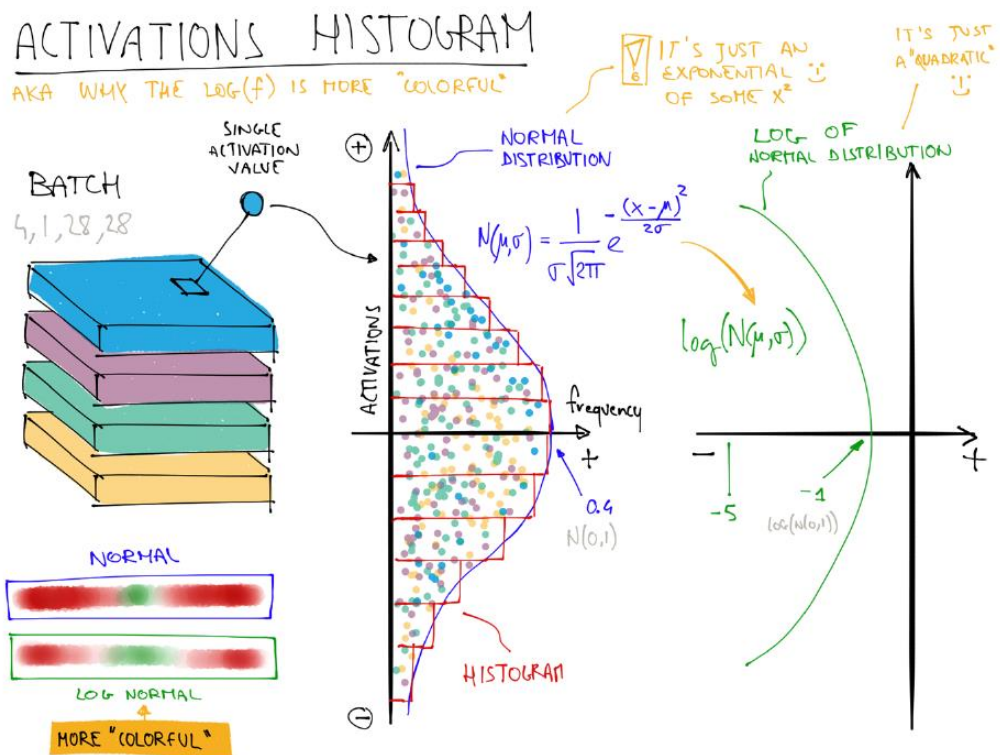 ACTIVATIONS HISTOGRAM
AKA WHY THE LOG(f) IS MORE "COLORFUL"
IT'S JUST AN
EXPONENTIAL
OF SOME X²
IT'S JUST
A "QUADRATIC"
SINGLE
ACTIVATION
VALUE
BATCH
4, 1, 28, 28
+
NORMAL
DISTRIBUTION
N(μ,σ) = 1/(σ√2π) e^-(x-μ)²/2σ
LOG OF
NORMAL DISTRIBUTION
log(N(μ,σ))
ACTIVATIONS
frequency
+
0.4
N(0,1)
-
+
-5
-1
log(N(0,1))
NORMAL
LOG NORMAL
MORE "COLORFUL"
HISTOGRAM
-